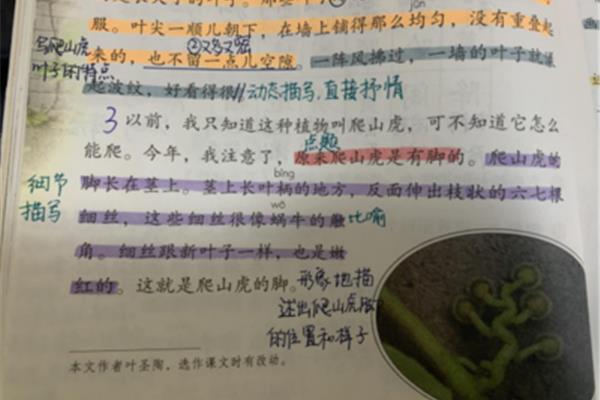 jūn
服。叶尖一顺儿朝下，在墙上铺得那么均匀，没有重叠起
写爬山虎
②又多又密
来的，也不留一点儿空隙。一阵风拂过，一墙的叶子就漾
叶子的特点
起波纹，好看得很 动态描写，直接抒情
3 以前，我只知道这种植物叫爬山虎，可不知道它怎么
点题
能爬。今年，我注意了，原来爬山虎是有脚的。爬山虎的
bǐng
细节
脚长在茎上。茎上长叶柄的地方，反面伸出枝状的六七根
wō
描写
细丝，这些细丝很像蜗牛的触 比喻
角。细丝跟新叶子一样，也是嫩
红的。这就是爬山虎的脚。形象地描
述出爬山虎脚
的位置和样子
本文作者叶圣陶，选作课文时有改动。